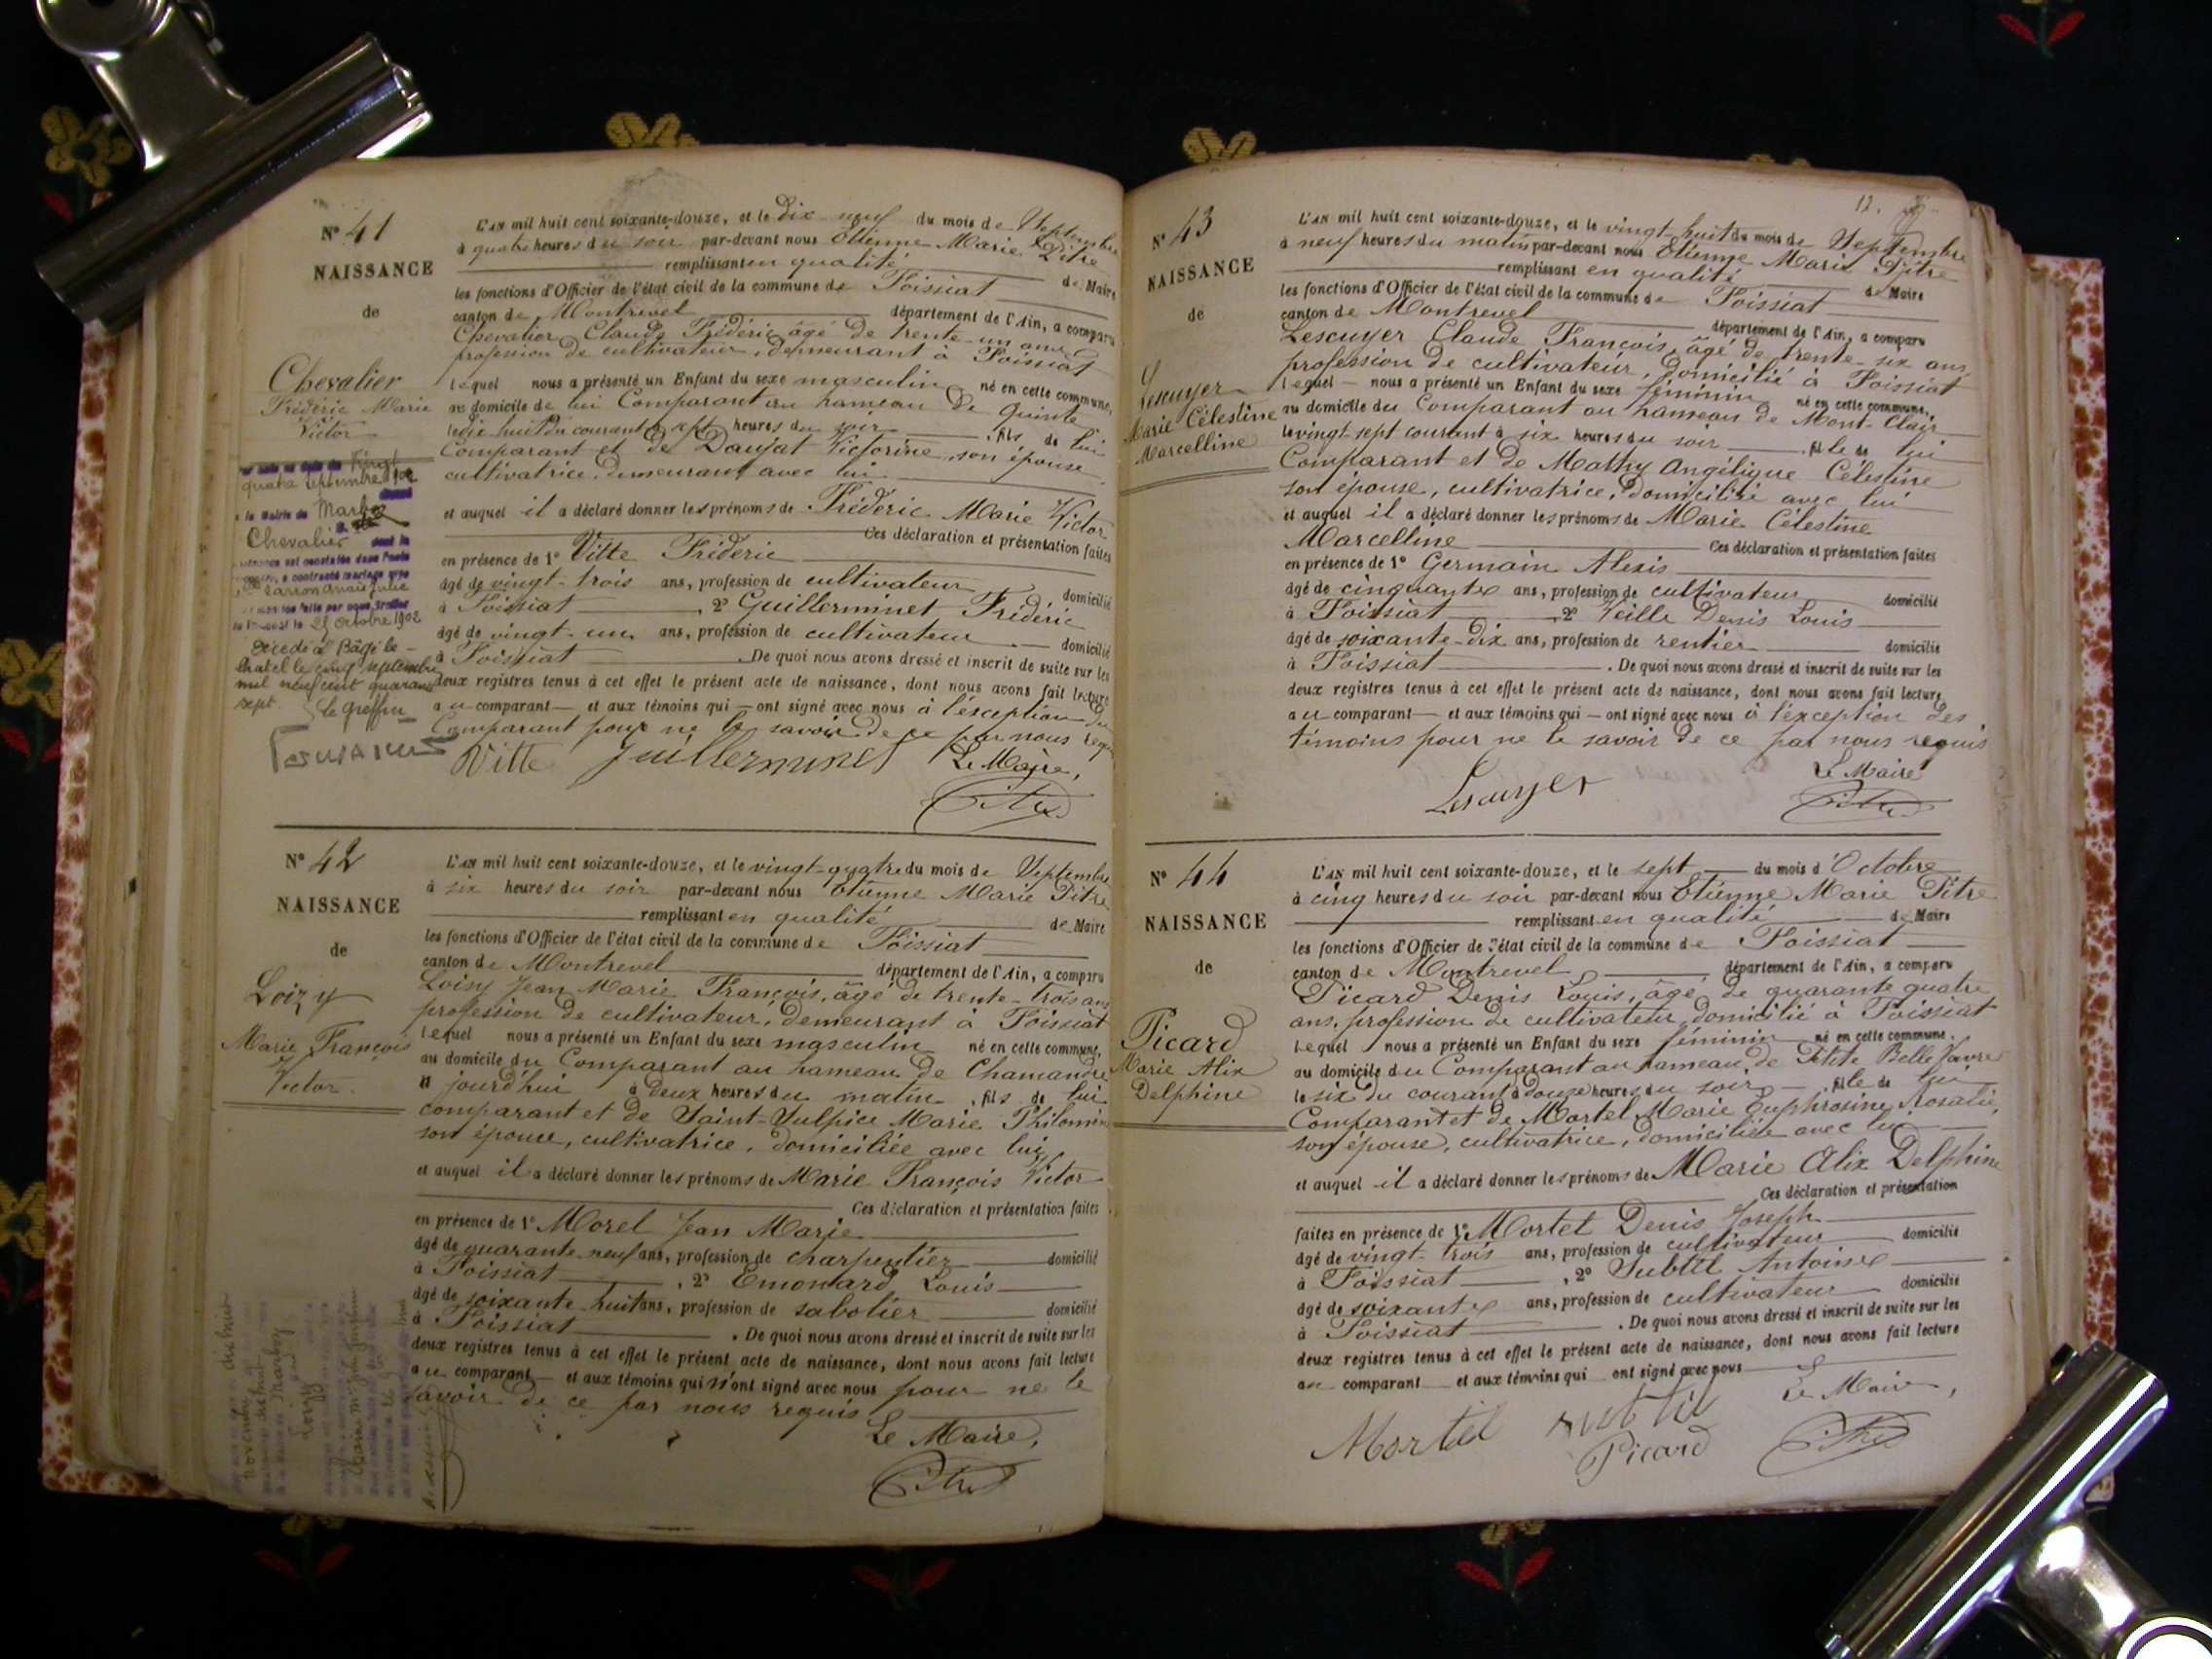 N° 41
NAISSANCE
de
Chevalier
Frédéric Marie
Victor
Vingt
quatre Septembre
la Mairie de Marboz
Chevalier
a contracté mariage avec
25 Octobre 1902
Décédé à Bâgé le
chatel le cinq septembre
mil neuf cent quarante
sept. Le greffier
L'AN mil huit cent soixante-douze, et le Dix neuf du mois de Septembre
à quatre heures du soir par-devant nous Etienne Marie Pitre
remplissant en qualité de Maire
les fonctions d'Officier de l'état civil de la commune de Foissiat
canton de Montrevel département de l'Ain, a comparu
Chevalier Claude Frédéric âgé de trente-un ans
profession de cultivateur, demeurant à Foissiat
lequel nous a présenté un Enfant du sexe masculin né en cette commune,
au domicile de lui Comparant au hameau de Quinte
le dix huit du courant à sept heures du soir, fils de lui
Comparant et de Daujat Victorine, son épouse
cultivatrice, demeurant avec lui
et auquel il a déclaré donner les prénoms de Frédéric Marie Victor
Ces déclaration et présentation faites
en présence de 1° Vitte Fréderic
âgé de vingt-trois ans, profession de cultivateur domicilié
à Foissiat, 2° Guillerminet Frédéric
âgé de vingt-un ans, profession de cultivateur domicilié
à Foissiat De quoi nous avons dressé et inscrit de suite sur les
deux registres tenus à cet effet le présent acte de naissance, dont nous avons fait lecture
au comparant et aux témoins qui ont signé avec nous à l'exception du
Comparant pour ne le savoir de ce par nous requis
Vitte Guillerminet Le Maire,
Pitre
N° 42
NAISSANCE
de
Loizy
Marie François
Victor.
L'AN mil huit cent soixante-douze, et le vingt-quatre du mois de Septembre
à six heures du soir par-devant nous Etienne Marie Pitre
remplissant en qualité de Maire
les fonctions d'Officier de l'état civil de la commune de Foissiat
canton de Montrevel département de l'Ain, a comparu
Loisy Jean Marie François, âgé de trente-trois ans
profession de cultivateur, demeurant à Foissiat
lequel nous a présenté un Enfant du sexe masculin né en cette commune,
au domicile du Comparant au hameau de Chamandre
jourd'hui à deux heures du matin, fils de lui
comparant et de Saint-Sulpice Marie Philomène
son épouse, cultivatrice, domiciliée avec lui,
et auquel il a déclaré donner les prénoms de Marie François Victor
Ces déclaration et présentation faites
en présence de 1° Morel Jean Marie
âgé de quarante-neuf ans, profession de charpentier domicilié
à Foissiat, 2° Emonard Louis
âgé de soixante-huit ans, profession de sabotier domicilié
à Foissiat. De quoi nous avons dressé et inscrit de suite sur les
deux registres tenus à cet effet le présent acte de naissance, dont nous avons fait lecture
au comparant et aux témoins qui n'ont signé avec nous pour ne le
savoir de ce par nous requis
Le Maire,
Pitre
12.
N° 43
NAISSANCE
de
Lescuyer
Marie Célestine
Marcelline
L'AN mil huit cent soixante-douze, et le vingt-huit du mois de Septembre
à neuf heures du matin par-devant nous Etienne Marie Pitre
remplissant en qualité de Maire
les fonctions d'Officier de l'état civil de la commune de Foissiat
canton de Montrevel département de l'Ain, a comparu
Lescuyer Claude François, âgé de trente-six ans,
profession de cultivateur, domicilié à Foissiat
lequel nous a présenté un Enfant du sexe féminin né en cette commune,
au domicile du Comparant au hameau de Mont-Clair
le vingt-sept courant à six heures du soir, fille de lui
Comparant et de Mathy Angélique Célestine
son épouse, cultivatrice, domicilié avec lui
et auquel il a déclaré donner les prénoms de Marie Célestine
Marcelline Ces déclaration et présentation faites
en présence de 1° Germain Alexis
âgé de cinquante ans, profession de cultivateur domicilié
à Foissiat, 2° Veille Denis Louis
âgé de soixante-dix ans, profession de rentier domicilié
à Foissiat. De quoi nous avons dressé et inscrit de suite sur les
deux registres tenus à cet effet le présent acte de naissance, dont nous avons fait lecture
au comparant et aux témoins qui ont signé avec nous à l'exception des
témoins pour ne le savoir de ce par nous requis
Lescuyer Le Maire
Pitre
N° 44
NAISSANCE
de
Picard
Marie Alix
Delphine
L'AN mil huit cent soixante-douze, et le sept du mois d'Octobre
à cinq heures du soir par-devant nous Etienne Marie Pitre
remplissant en qualité de Maire
les fonctions d'Officier de l'état civil de la commune de Foissiat
canton de Montrevel département de l'Ain, a comparu
Picard Denis Louis, âgé de quarante quatre
ans, profession de cultivateur domicilié à Foissiat
lequel nous a présenté un Enfant du sexe féminin né en cette commune.
au domicile du Comparant au hameau de Petite Belle Vavre
le six du courant à douze heures du soir, fille de lui
Comparant et de Mortel Marie Euphrosine Rosalie,
son épouse, cultivatrice, domiciliée avec lui
et auquel il a déclaré donner les prénoms de Marie Alix Delphine
Ces déclaration et présentation
faites en présence de 1° Mortel Denis Joseph
âgé de vingt-trois ans, profession de cultivateur domicilié
à Foissiat, 2° Subtil Antoine
âgé de soixante ans, profession de cultivateur domicilié
à Foissiat. De quoi nous avons dressé et inscrit de suite sur les
deux registres tenus à cet effet le présent acte de naissance, dont nous avons fait lecture
au comparant et aux témoins qui ont signé avec nous
Le Maire,
Mortel Subtil
Picard Pitre